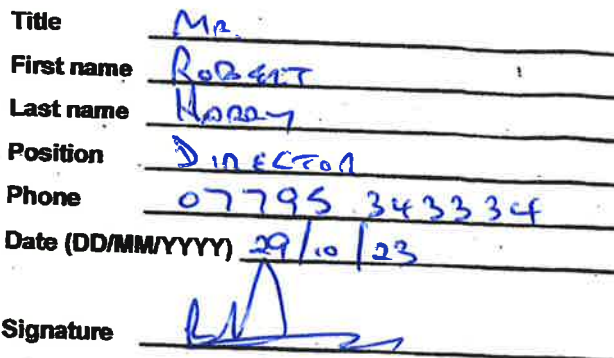 Title Mr.
First name ROBERT
Last name
Position DIRECTOR
Phone 07795 343334
Date (DD/MM/YYYY) 29/10/23
Signature